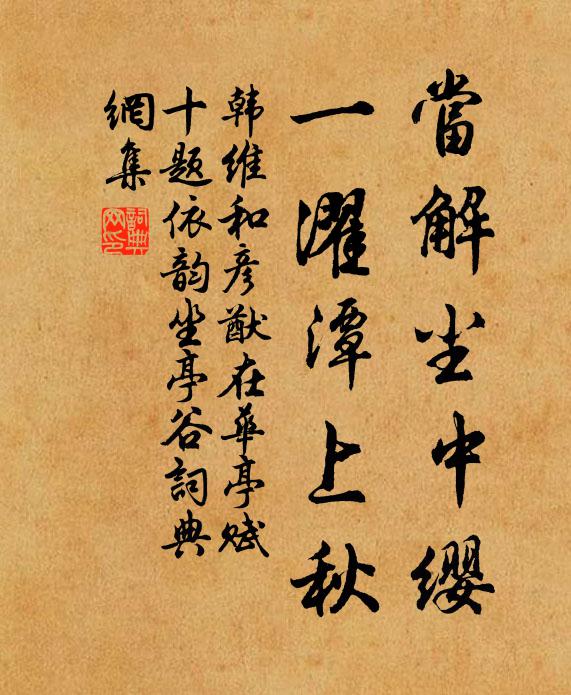 當解尘中缨
一濯潭上秋
韩维和彦猷在華亭赋
十题依韵坐亭谷詞典
網集
詞典
网印